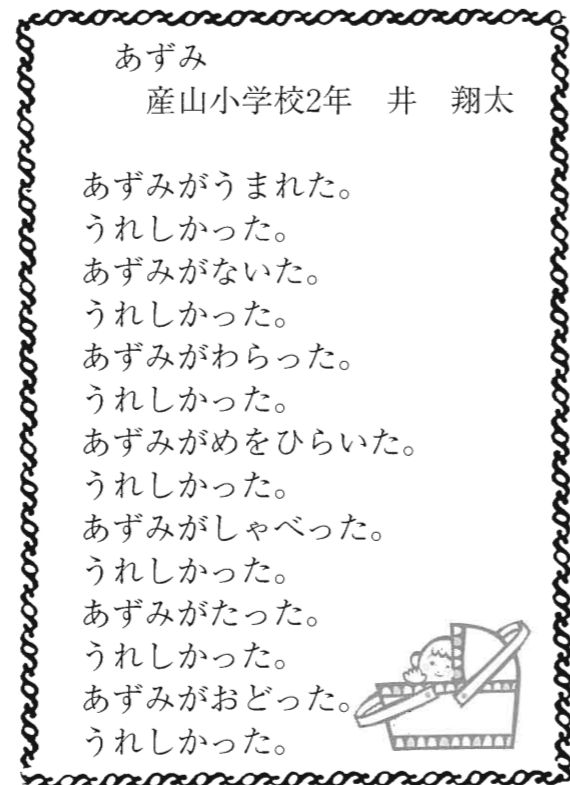 あずみ
産山小学校2年　井　翔太
あずみがうまれた。
うれしかった。
あずみがないた。
うれしかった。
あずみがわらった。
うれしかった。
あずみがめをひらいた。
うれしかった。
あずみがしゃべった。
うれしかった。
あずみがたった。
うれしかった。
あずみがおどった。
うれしかった。